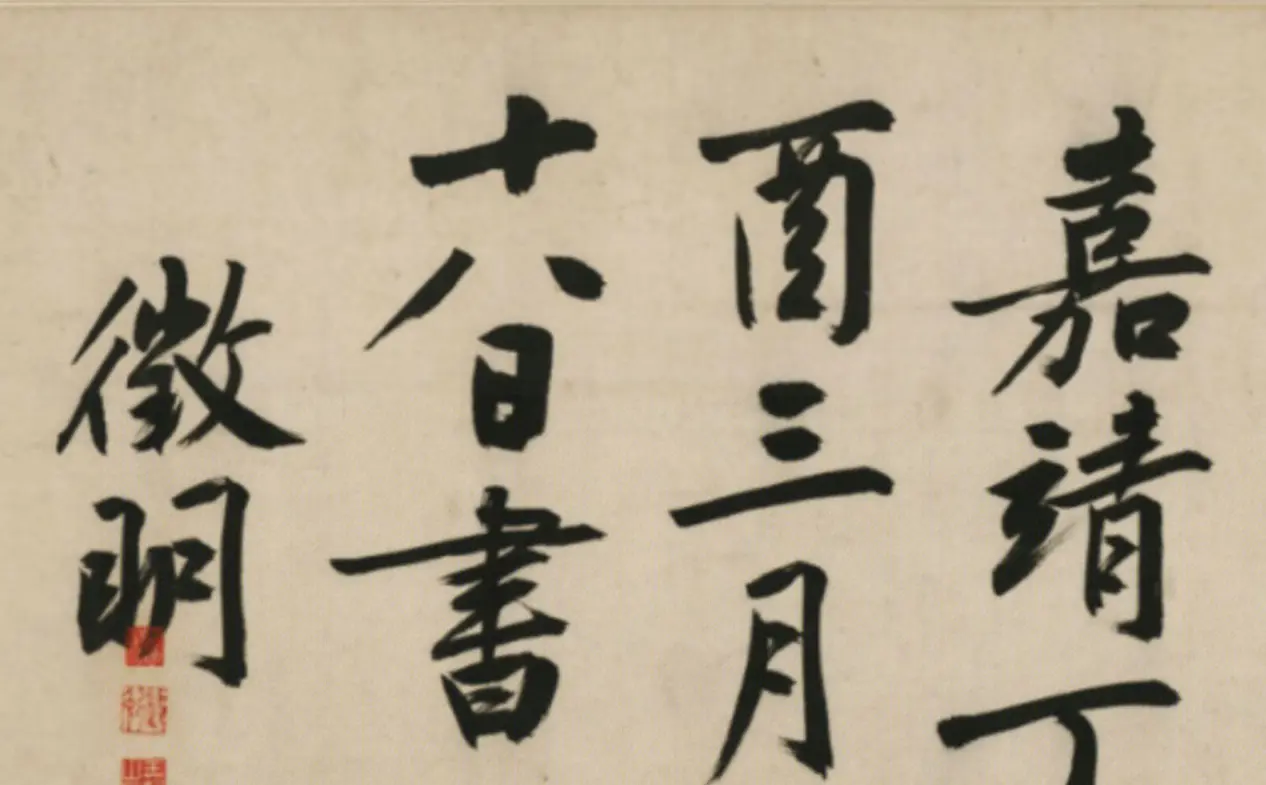 嘉靖丁
酉三月
十八日書
徵明